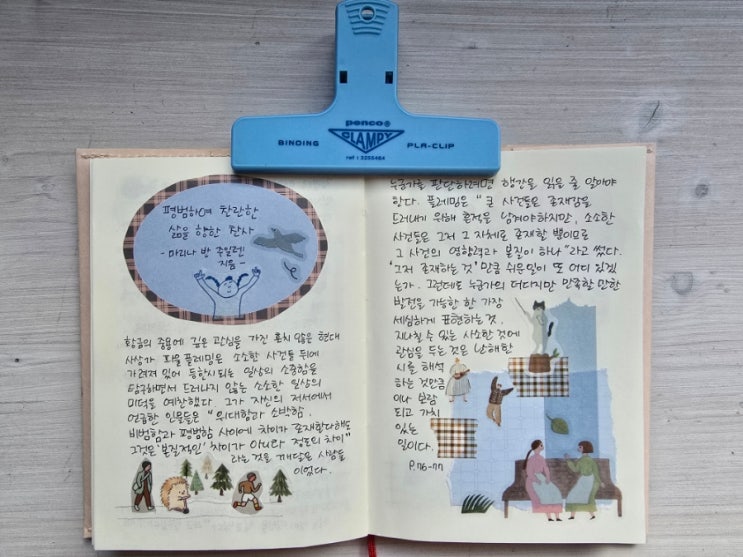 penco®
PLAMPY
BINDING
PLA-CLIP
ref : 3255464
평범하여 찬란한
삶을 향한 찬사
- 마리나 반 주일렌
지음 -
황금의 중용에 깊은 관심을 가진 흔치 않은 현대
사상가 파울 플레밍은 소소한 사건들 뒤에
가려져 있어 등한시되는 일상의 소중함을
탐구하면서 드러나지 않는 소소한 일상의
미덕을 예찬했다. 그가 자신의 저서에서
언급한 인물들은 "위대함과 소박함,
비범함과 평범함 사이에 차이가 존재한다해도
그것은 '본질적인' 차이가 아니라 정도의 차이"
라는 것을 깨달은 사람들
이었다.
누군가를 판단하려면 행간을 읽을 줄 알아야
한다. 플레밍은 "큰 사건들은 존재감을
드러내기 위해 흔적을 남겨야하지만, 소소한
사건들은 그저 그 자체로 존재할 뿐이므로
그 사건의 영향력과 본질이 하나"라고 썼다.
'그저 존재하는 것' 만큼 쉬운일이 또 어디 있겠
는가. 그런데도 누군가의 더디지만 만족할 만한
발전을 가능한 한 가장
세심하게 표현하는 것,
지나칠 수 있는 사소한 것에
관심을 두는 것은 난해한
시를 해석
하는 것만큼
이나 보람
되고 가치
있는
일이다.
P.76-77